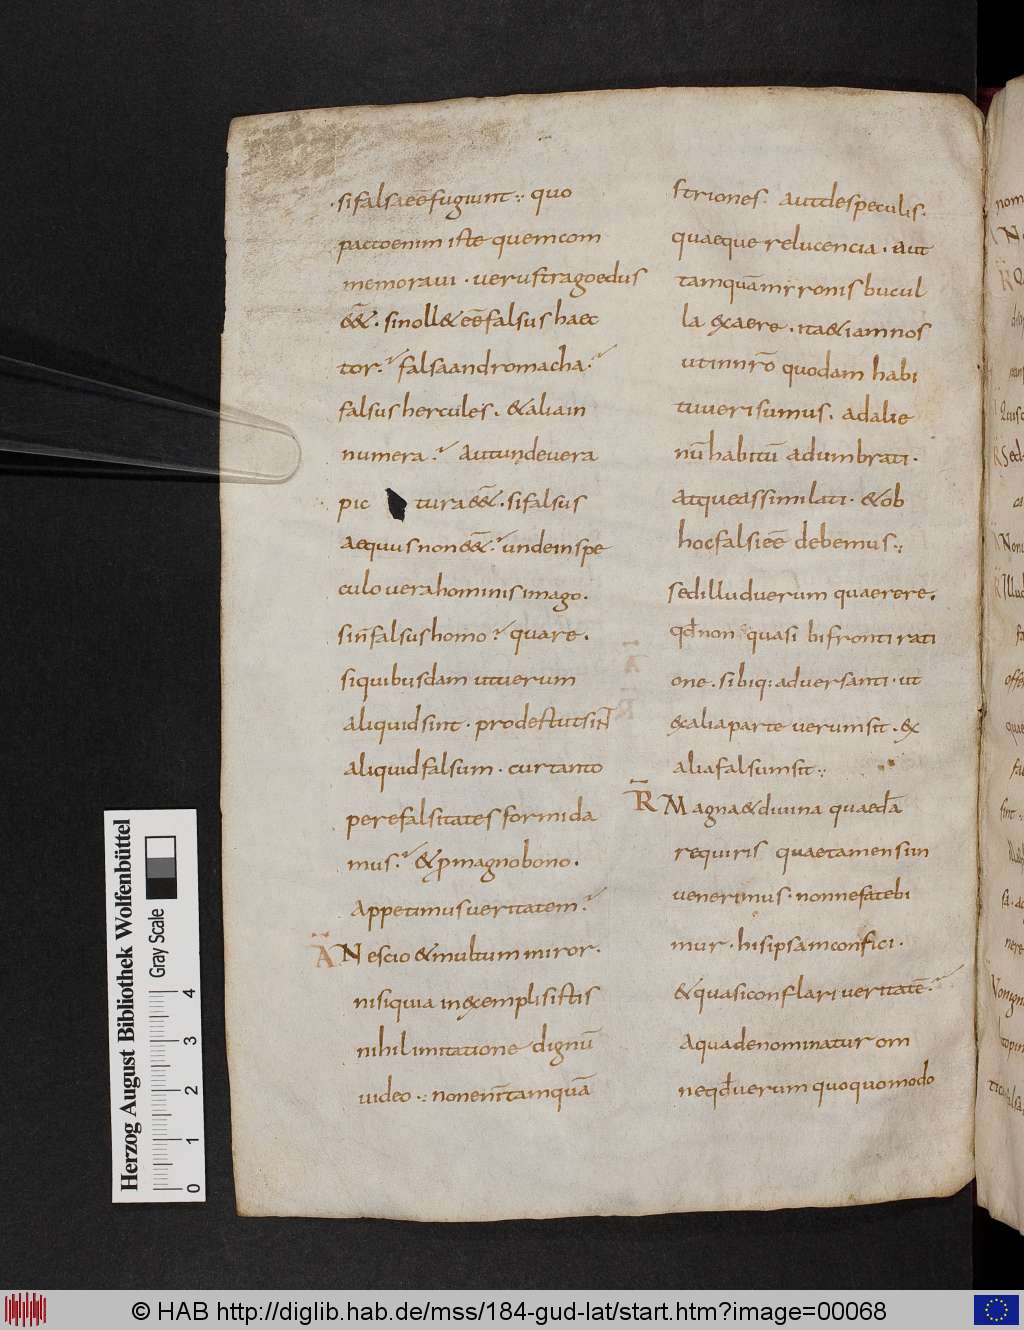 si falsa eē̄ fugiunt :, quo
pacto enim iste quem com
memoraui · uerus tragoedus
&&̄ · si noll& eē̄ falsus haec
tor ·? falsa andromacha ·?
falsus hercules · & alia in
numera ·? Aut unde uera
pic tura &&̄ · si falsus
aequus non &&̄ ·? unde in spe
culo uera hominis imago ·
si n̄ falsus homo ·? quare ·
si quibusdam ut uerum
aliquid sint · prodest ut sin̄t
aliquid falsum · cur tanto
pere falsitates formida
mus ·? & p magno bono ·
Appetimus ueritatem ·?
A Nescio & multum miror ·
nisi quia in exemplis istis
nihil imitatione dignū
uideo :, non eni̅ tamquā
striones · aut de speculis ·
quaeque relucencia · aut
tamquā mironis bucul
la ex aere · ita & iam nos
ut in nr̄o quodam habi
tu ueri sumus · ad alie
nū habitū adumbrati ·
atque assimilati · & ob
hoc falsi eē̄ debemus :,
sed illud uerum quaerere ·
qđ non quasi bifronti rati
one · sibiq: aduersanti · ut
ex alia parte uerum sit · ex
alia falsum sit :,
R Magna & diuina quaedā
requiris quae tamen si in
uenerimus · nonne fatebi
mur · his ipsam confici ·
& quasi conflari ueritatē ·?
A qua denominatur om
ne qđ uerum quoquo modo
Herzog August Bibliothek Wolfenbüttel
Gray Scale
0 1 2 3 4
© HAB http://diglib.hab.de/mss/184-gud-lat/start.htm?image=00068